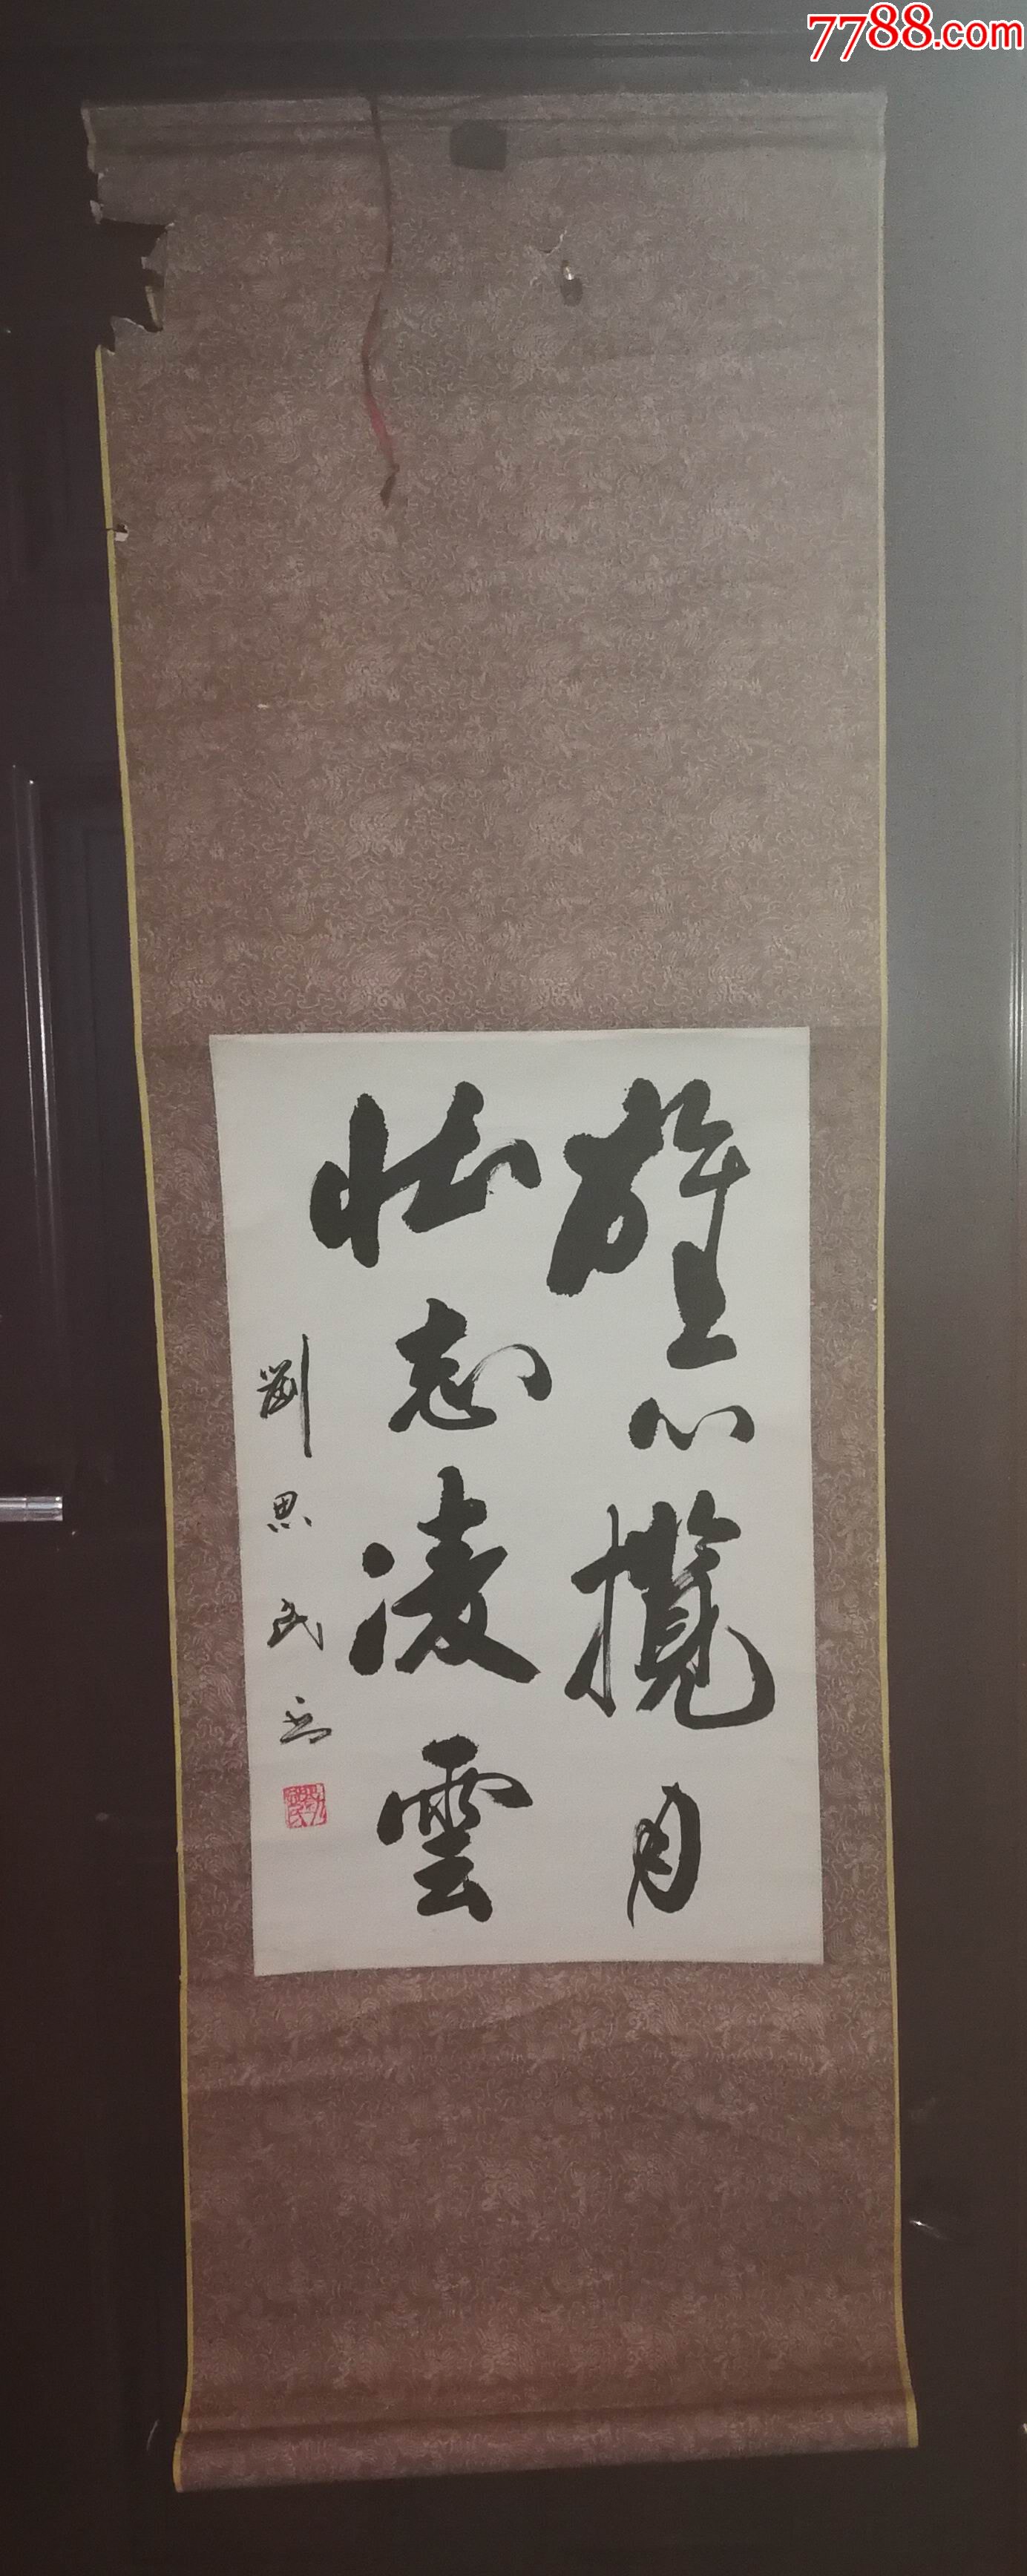 7788.com
雄心攬月
壯志凌雲
劉思民書